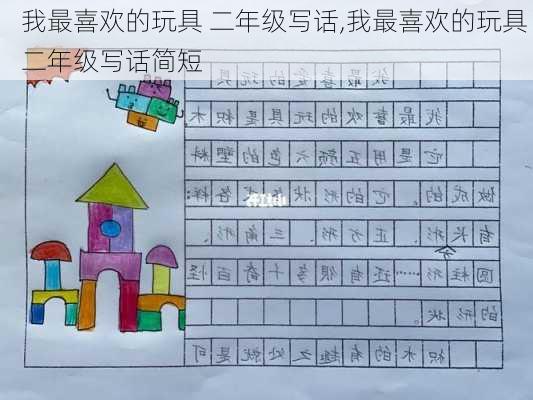 我最喜欢的玩具 二年级写话,我最喜欢的玩具
二年级写话简短
我最喜爱的玩具
我最喜欢的玩具是积木
它是用五颜六色的塑料
做成的。它的形状各样:
有长形、正方形、三角形、
圆柱形……还有很多千奇百怪
的形状。
积木的有趣之处就是可